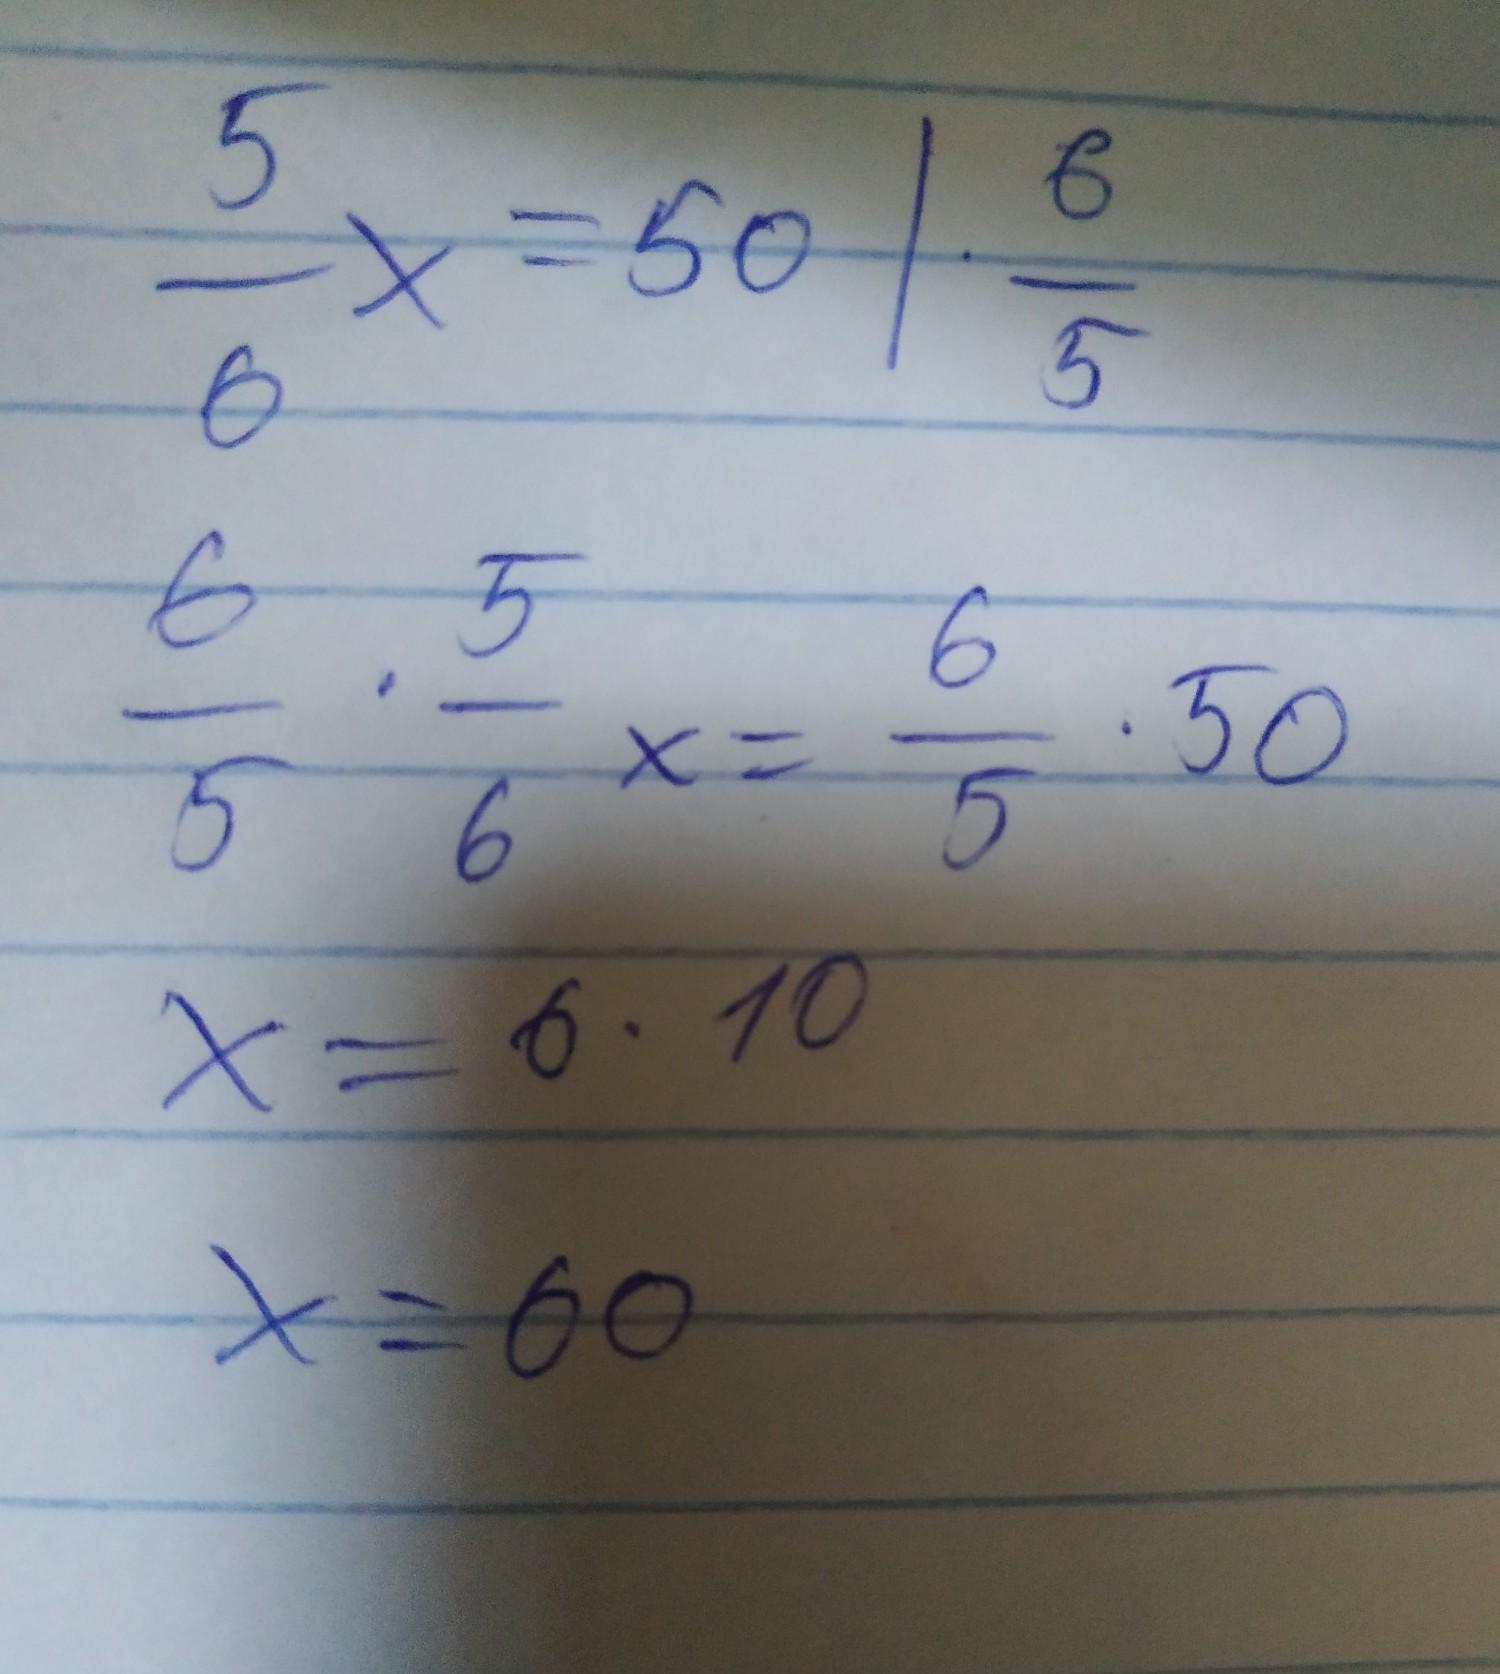 5/6 x = 50 | · 6/5
6/5 · 5/6 x = 6/5 · 50
x = 6 · 10
x = 60